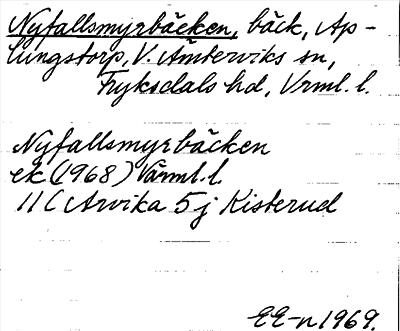 Nyfallsmyrbäcken, bäck, Ap-
lungstorp, V. Ämterviks sn,
Fryksdals hd, Vrml. l.
Nyfallsmyrbäcken
ek (1968) Värml. l.
11 C Arvika 5 j Kisterud
EE-n 1969.